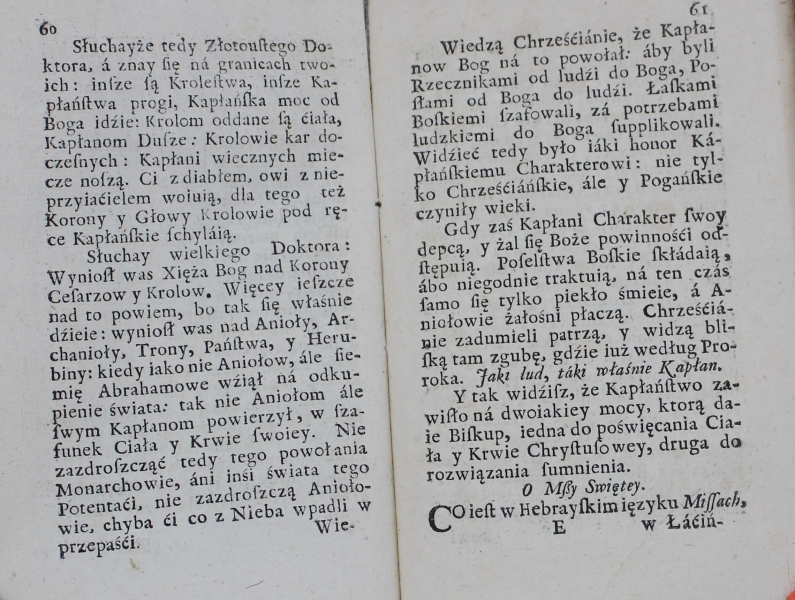 60
Słuchayże tedy Złotouſtego Do-
ktora, á znay ſię ná granicach two-
ich: inſze ſą Kroleſtwa, inſze Ka-
płańſtwa progi, Kapłańſka moc od
Boga idźie: Krolom oddane ſą ćiała,
Kapłanom Duſze: Krolowie kar do-
czeſnych: Kapłani wiecznych mie-
cze noſzą. Ci z diabłem, owi z nie-
przyiaćielem woiuią, dla tego też
Korony y Głowy Krolowie pod rę-
ce Kapłańſkie ſchyláią.
Słuchay wielkiego Doktora:
Wynioſł was Xięża Bog nad Korony
Ceſarzow y Krolow. Więcey ieſzcze
nad to powiem, bo tak ſię właśnie
dźieie: wynioſł was nad Anioły, Ar-
chanioły, Trony, Pańſtwa, y Heru-
biny: kiedy iako nie Aniołow, ále ſie-
mię Abrahamowe wźiął ná odku-
pienie świata: tak nie Aniołom ále
ſwym Kapłanom powierzył, w ſza-
funek Ciała y Krwie ſwoiey. Nie
zazdroſzcząć tedy tego powołania
Monarchowie, áni inśi świata tego
Potentaći, nie zazdroſzczą Anioło-
wie, chyba ći co z Nieba wpadli w
przepaśći.
Wie-
61
Wiedzą Chrześćiánie, że Kapła-
now Bog ná to powołał: áby byli
Rzecznikami od ludźi do Boga, Po-
ſłami od Boga do ludźi. Łaſkami
Boſkiemi ſzafowali, zá potrzebami
ludzkiemi do Boga ſupplikowali.
Widźieć tedy było iáki honor Ká-
płańſkiemu Charakterowi: nie tyl-
ko Chrześćiáńſkie, ále y Pogańſkie
czyniły wieki.
Gdy zaś Kapłani Charakter ſwoy
depcą, y żal ſię Boże powinnośći od-
ſtępuią. Poſelſtwa Boſkie ſkłádaią,
ábo niegodnie traktuią, ná ten czás
ſamo ſię tylko piekło śmieie, á A-
niołowie żałośni płaczą. Chrześćiá-
nie zadumieli patrzą, y widzą bli-
ſką tam zgubę, gdźie iuż według Pro-
roka. Jaki lud, táki właśnie Kapłan.
Y tak widźiſz, że Kapłańſtwo za-
wiſło ná dwoiakiey mocy, ktorą da-
ie Biſkup, iedna do poświęcania Cia-
ła y Krwie Chryſtuſowey, druga do
rozwiązania ſumnienia.
O Mſzy Swiętey.
CO ieſt w Hebrayſkim ięzyku Miſſach,
E w Łáćiń-